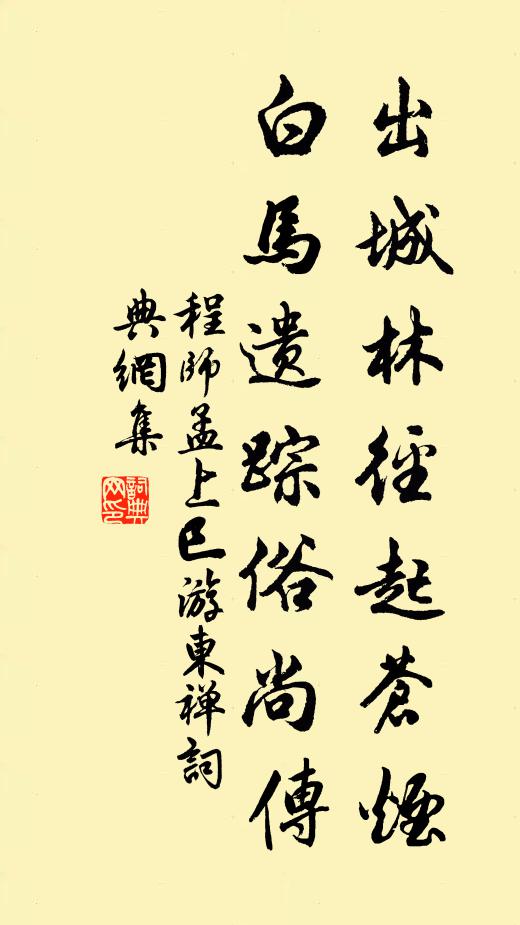 出城林徑起蒼煙
白馬遗踪俗尚傳
程師孟上巳游東禅詞
典網集
詞典網印